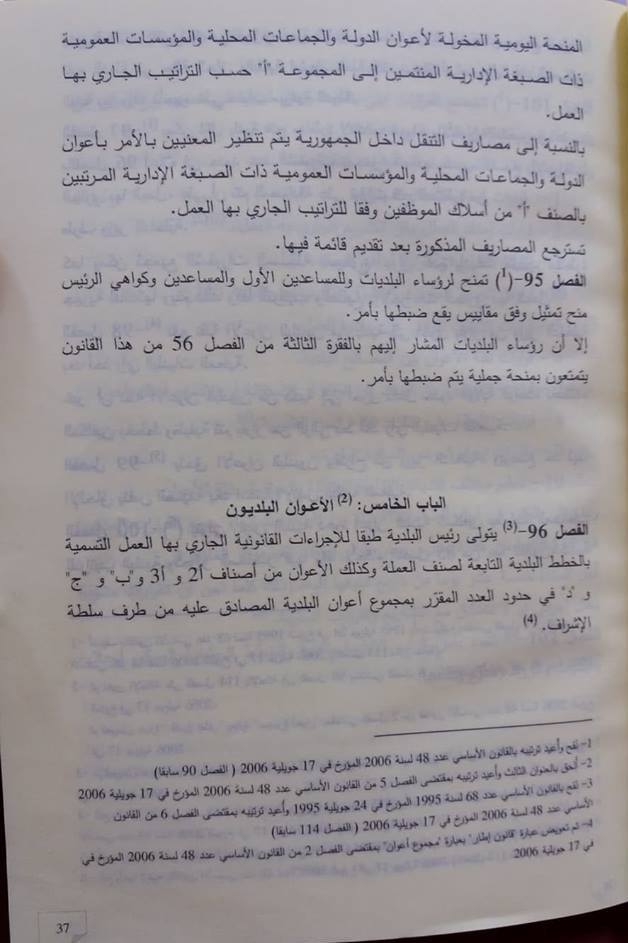 المنحة اليومية المخولة لأعوان الدولة والجماعات المحلية والمؤسسات العمومية
ذات الصبغة الإدارية المنتمين إلى المجموعة "أ" حسب التراتيب الجاري بها
العمل.
بالنسبة إلى مصاريف التنقل داخل الجمهورية يتم تنظير المعنيين بالأمر بأعوان
الدولة والجماعات المحلية والمؤسسات العمومية ذات الصبغة الإدارية المرتبين
بالصنف "أ" من أسلاك الموظفين وفقا للتراتيب الجاري بها العمل.
تسترجع المصاريف المذكورة بعد تقديم قائمة فيها.
الفصل 95-(1) تمنح لرؤساء البلديات وللمساعدين الأول والمساعدين وكواهي الرئيس
منح تمثيل وفق مقاييس يقع ضبطها بأمر.
إلا أن رؤساء البلديات المشار إليهم بالفقرة الثالثة من الفصل 56 من هذا القانون
يتمتعون بمنحة جملية يتم ضبطها بأمر.
الباب الخامس: (2) الأعوان البلديون
الفصل 96-(3) يتولى رئيس البلدية طبقا للإجراءات القانونية الجاري بها العمل التسمية
بالخطط البلدية التابعة لصنف العملة وكذلك الأعوان من أصناف أ2 و أ3 و"ب" و "ج"
و "د" في حدود العدد المقرّر بمجموع أعوان البلدية المصادق عليه من طرف سلطة
الإشراف. (4)
1- نقح وأعيد ترتيبه بالقانون الأساسي عدد 48 لسنة 2006 المؤرخ في 17 جويلية 2006 ( الفصل 90 سابقا)
2- ألحق بالعنوان الثالث وأعيد ترتيبه بمقتضى الفصل 5 من القانون الأساسي عدد 48 لسنة 2006 المؤرخ في 17 جويلية 2006
3- نقح بالقانون الأساسي عدد 68 لسنة 1995 المؤرخ في 24 جويلية 1995 وأعيد ترتيبه بمقتضى الفصل 6 من القانون
الأساسي عدد 48 لسنة 2006 المؤرخ في 17 جويلية 2006 ( الفصل 114 سابقا)
4- تم تعويض عبارة "قانون إطار" بعبارة "مجموع أعوان" بمقتضى الفصل 2 من القانون الأساسي عدد 48 لسنة 2006 المؤرخ في
في 17 جويلية 2006
37